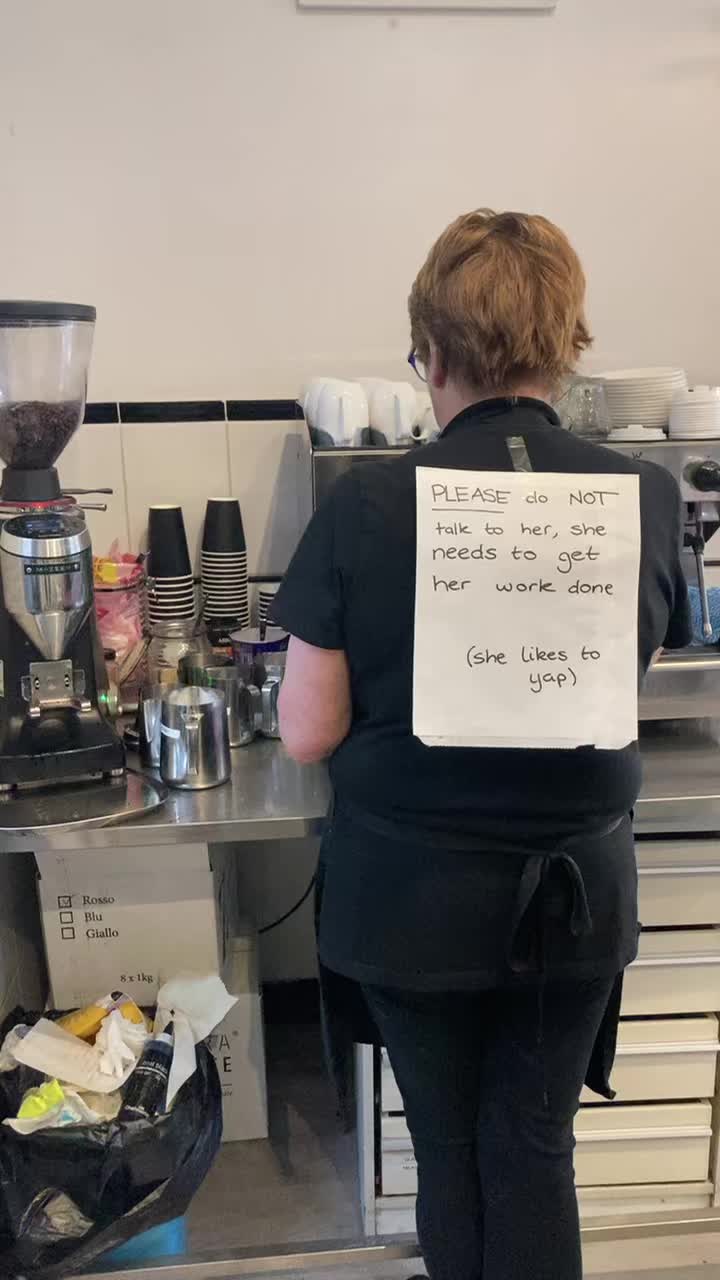 PLEASE do NOT
talk to her, she
needs to get
her work done
(she likes to
yap)
Rosso
Blu
Giallo
8 x 1kg